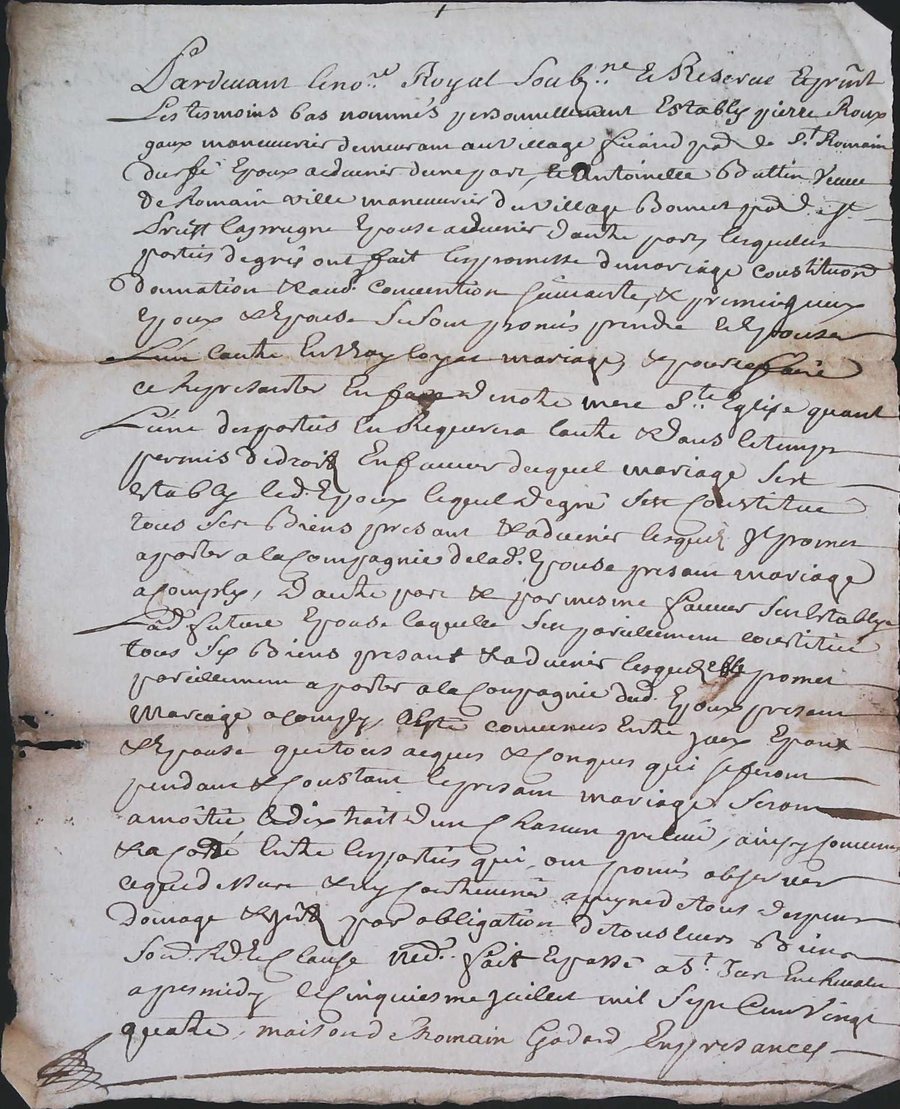 Pardevant le no.re Royal Soub.ne & Reservé Et pñt
Les tesmoins bas nommés personnellement Establÿ pierre Roux
manœuvrier demeurant au village par de St Romain
durfé Epoux advenir dune part, & Antoinelle Veuve
de Romain ville manœuvrier du village par d. St
priest la prugne Epouse advenir dautre part lesquelles
parties de gré ont fait les promesse de mariage constitution
donnation & aud. convention suivante, & premier jceux
Epoux & Epouse se sont promis prendre & Epouser
Lun lautre En vray loyal mariage & pour ce faire
ce Representer En face de notre mere Ste Eglise quant
Lune des parties En Requerera lautre & dans le temps
permis de droit En faveur duquel mariage sest
establÿ led. Epoux lequel de gré sest Constitué
tous ses Biens presant & advenir lesquels jl promet
aporter a la Compagnie de lad. Epouse presant mariage
acomply, Dautre part & par mesme faveur sest Establye
Lad. future Epouse laquelle sest pareillement constitué
tous ses Biens presant & advenir lesquels elle promet
pareillement aporter a la Compagnie dud. Epoux presant
Mariage acomply, a Esté convenus Entre jceux Epoux
& Epouse que tous acques & Conques qui se feront
pendant & Constant le presant mariage seront
a moitié & dixtrait dun Chacun, ainsy convenus
& acordé Entre les parties qui ont promis observer
ce que dessus & ny contrevenir a peyne de tous despens
domage & par obligation de tous leurs Biens
Soud. Rd. & Clause Ned. fait & passé a St Just En chevalet
apres midy le Cinquiesme juillet mil Sept Cent Vingt
quatre, maison de Romain Godard, En presances